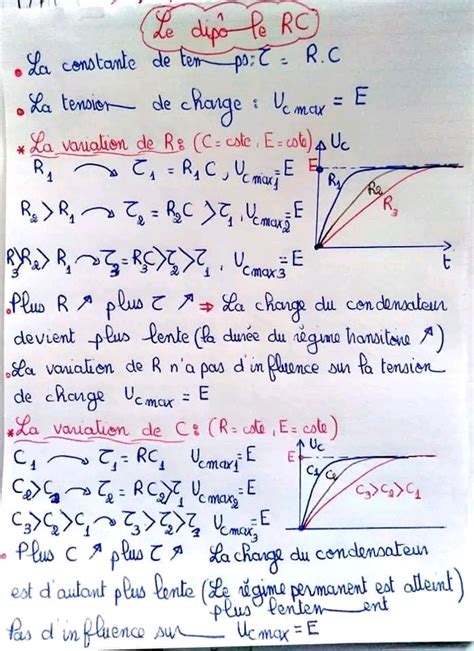 Le dipôle RC
• La constante de temps: τ = R.C
• La tension de charge : Ucmax = E
* La variation de R: (C = cste, E = cste)
R1 ⟶ τ1 = R1C, Ucmax1 = E
R2 > R1 ⟶ τ2 = R2C > τ1, Ucmax2 = E
R3>R2> R1 ⟶ τ3 = R3C>τ2>τ1, Ucmax3 = E
Uc
E
R1
R2
R3
t
• Plus R ↗ plus τ ↗ ⇒ La charge du condensateur
devient plus lente (la durée du régime transitoire ↗)
• La variation de R n'a pas d'influence sur la tension
de charge Ucmax = E
* La variation de C: (R = cste, E = cste)
C1 ⟶ τ1 = RC1 Ucmax1 = E
C2>C1 ⟶ τ2 = RC2>τ1 Ucmax2 = E
C3>C2>C1 ⟶ τ3>τ2>τ1 Ucmax3 = E
Uc
E
C1
C2
C3>C2>C1
• Plus C ↗ plus τ ↗ La charge du condensateur
est d'autant plus lente (Le régime permanent est atteint)
plus lentement
Pas d'influence sur Ucmax = E